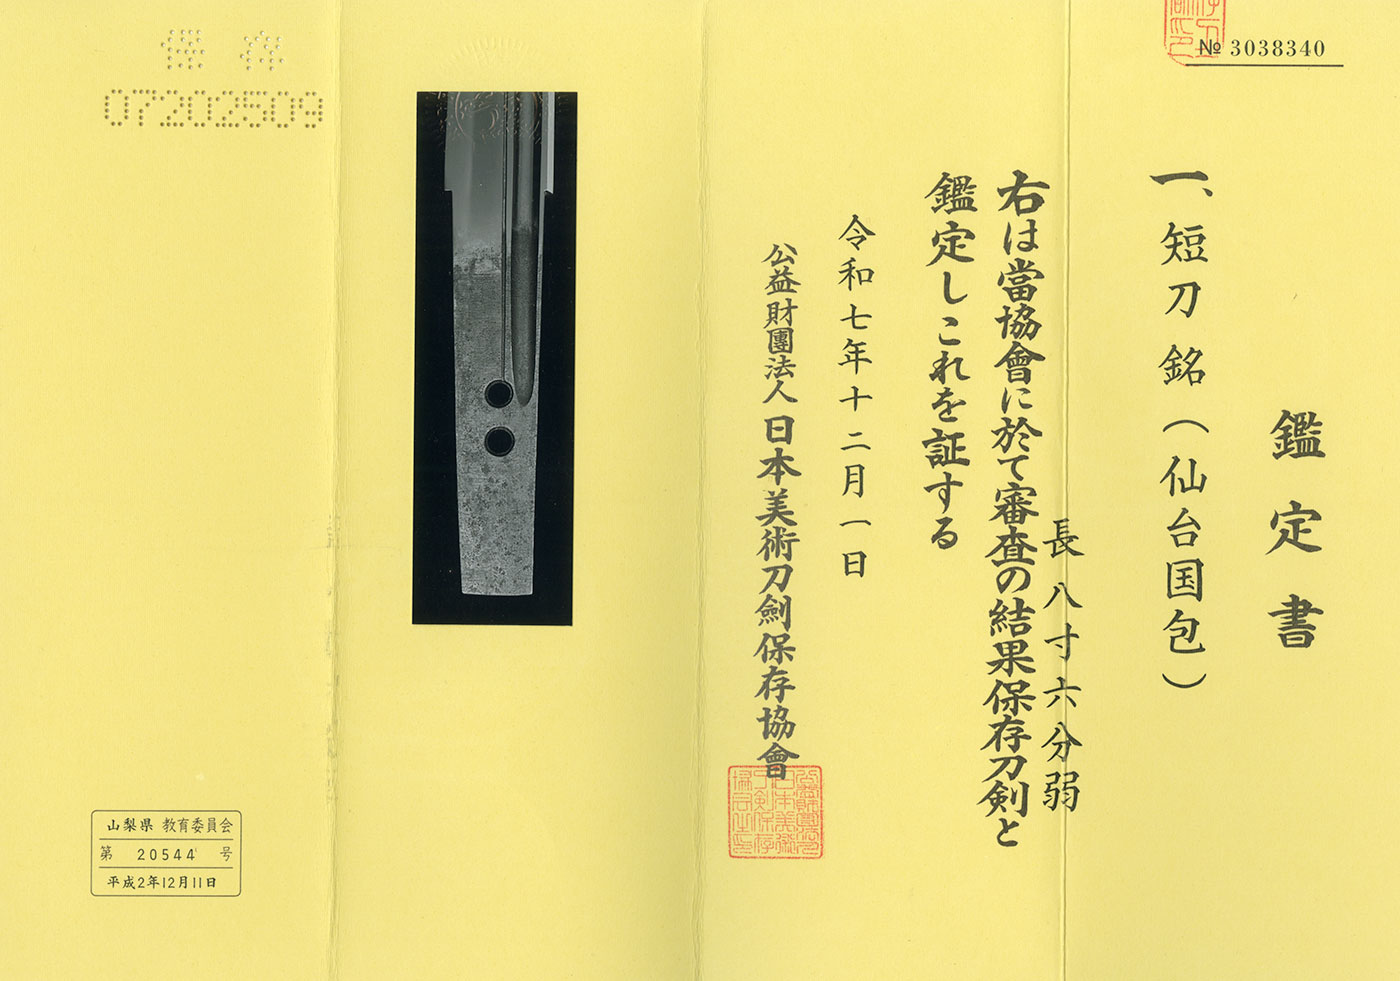 № 3038340
鑑定書
一、短刀 銘(仙台国包)
長 八寸六分弱
右は當協會に於て審査の結果保存刀剣と
鑑定しこれを証する
令和七年十二月一日
公益財團法人 日本美術刀劍保存協會
保存
07202509
山梨県 教育委員会
第 20544 号
平成2年12月11日